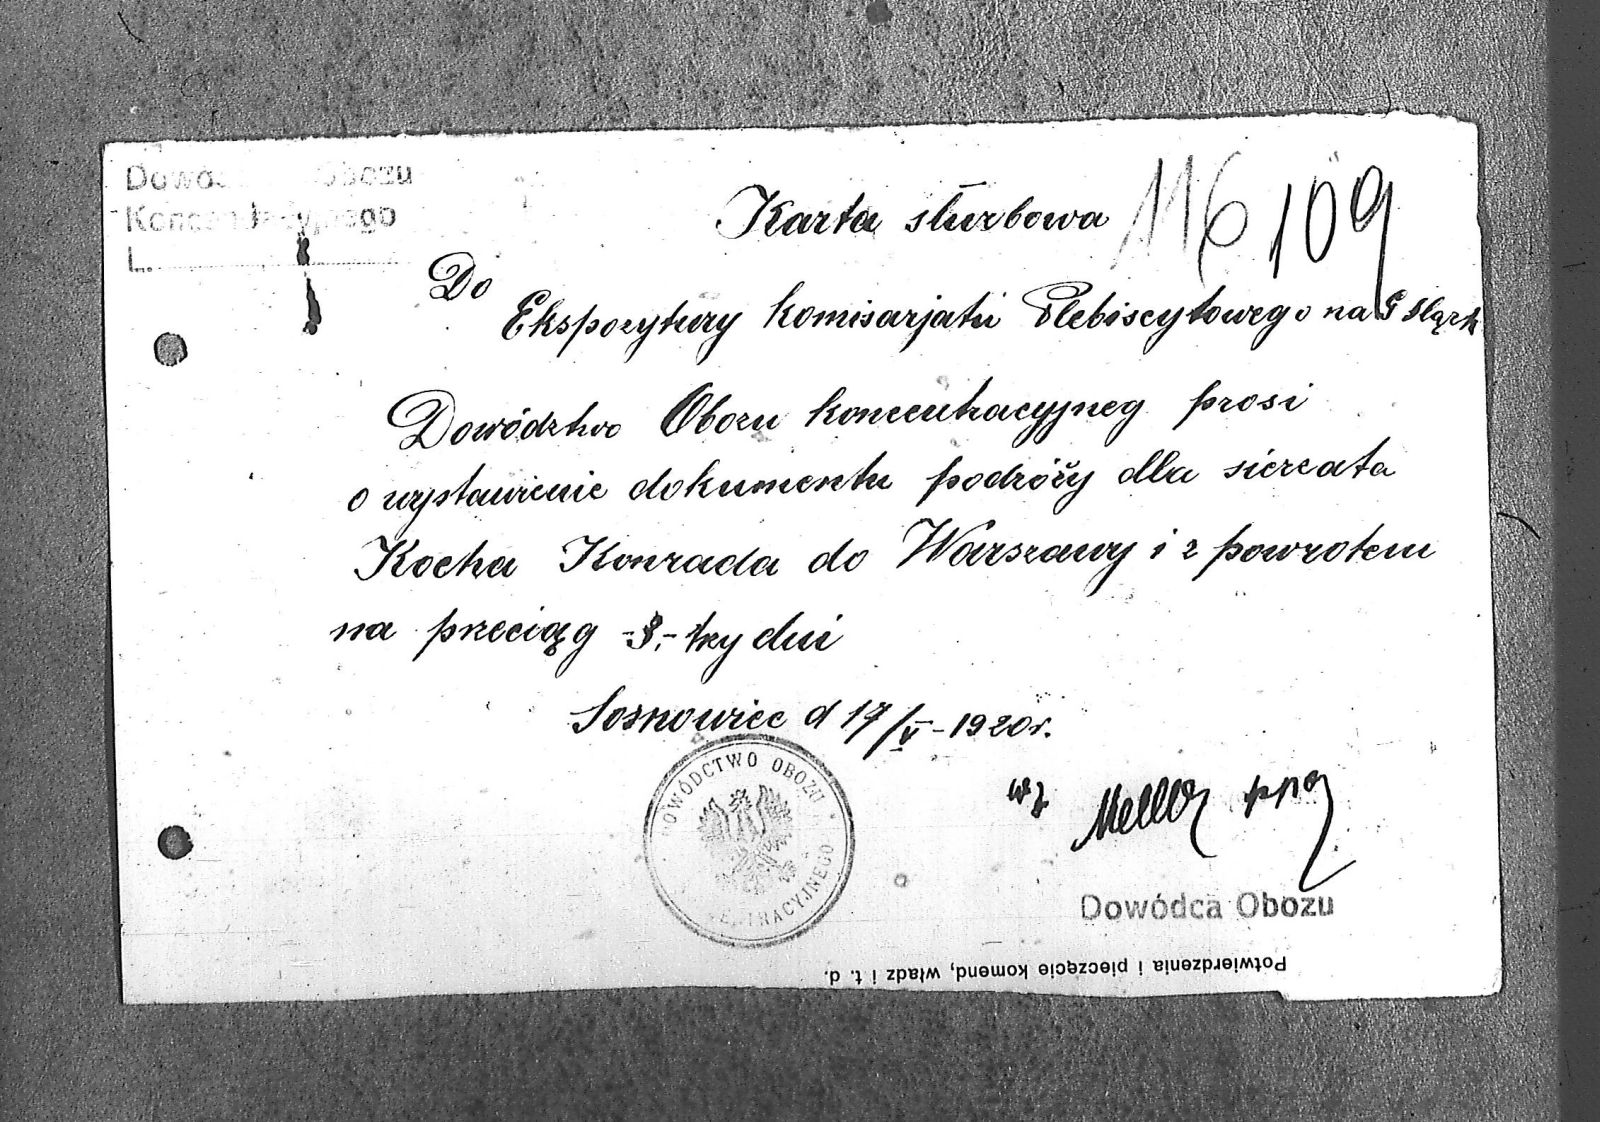 Obozu
L.
116 109
Karta służbowa
Do
Ekspozytury Komisarjatu Plebiscytowego na G Śląsk
Dowództwo Obozu koncentracyjneg prosi
o wystawienie dokumentu podróży dla sierżata
Kocha Konrada do Warszawy i z powrotem
na przeciąg -3.- trzy dni
Sosnowiec d 17/V - 1920 r.
DOWÓDCTWO OBOZU
wz
Dowódca Obozu
Potwierdzenia i pieczęcie komend, władz i t. d.